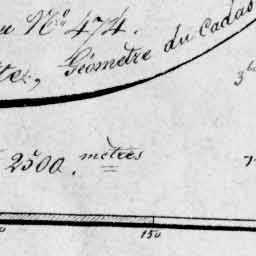 Nº 474.
Géomètre du Cadas
3
2500. mètres
150